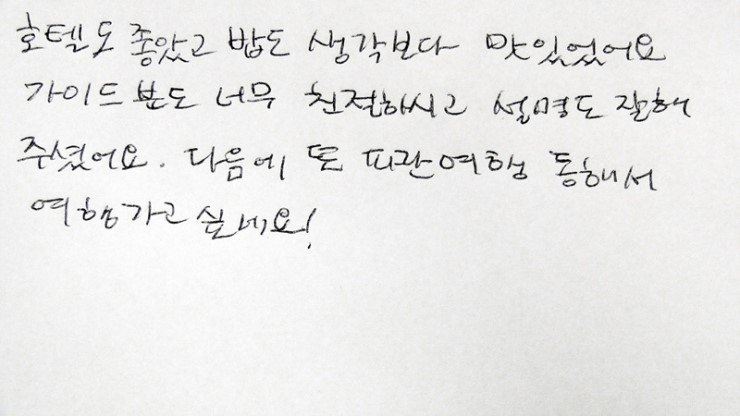 호텔도 좋았고 밥도 생각보다 맛있었어요
가이드분도 너무 친절하시고 설명도 잘해
주셨어요. 다음에 또 피관여행 통해서
여행가고 싶네요!